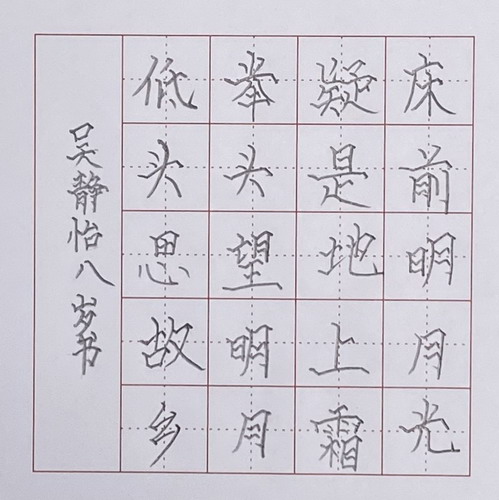 床前明月光
凝是地上霜
举头望明月
低头思故乡
吴静怡八岁书